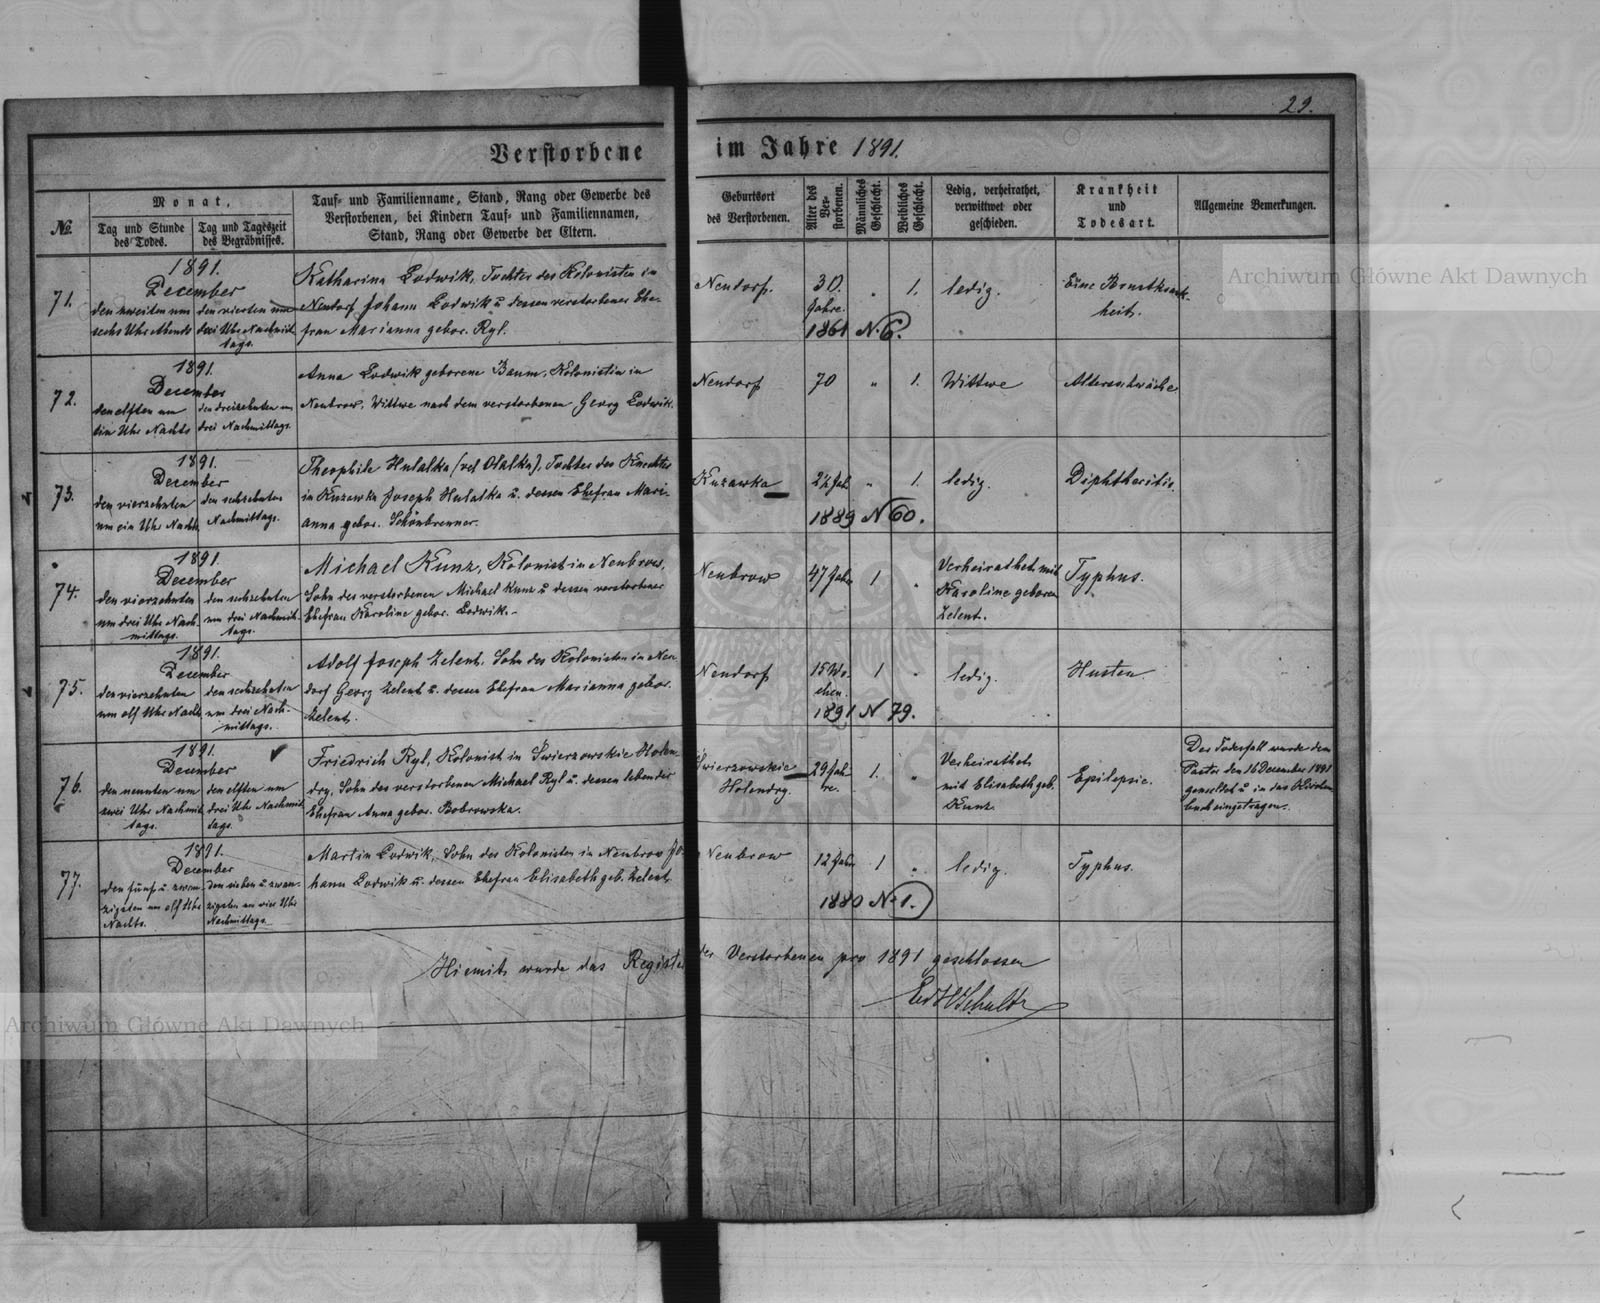 29.
Verstorbene im Jahre 1891.
№
Monat,
Tag und Stunde des Todes.
Tag und Tageszeit des Begräbnisses.
Tauf- und Familienname, Stand, Rang oder Gewerbe des
Verstorbenen, bei Kindern Tauf- und Familiennamen,
Stand, Rang oder Gewerbe der Eltern.
Geburtsort
des Verstorbenen.
Alter des Verstorbenen.
Männliches Geschlecht.
Weibliches Geschlecht.
Ledig, verheirathet,
verwittwet oder
geschieden.
Krankheit
und
Todesart.
Allgemeine Bemerkungen.
71.
1891.
December
den zweiten um
sechs Uhr Abends
den vierten um
drei Uhr Nachmit
tags.
Katharina Lodwik, Tochter des Kolonisten in
Neudorf Johann Lodwik u dessen verstorbener Ehe-
frau Marianna gebor. Ryl.
Neudorf.
30.
Jahre.
1861 N. 6.
1.
ledig.
Eine Brustkrank
heit.
72.
1891.
December
den elften um
ein Uhr Nachts
den dreizehnten um
drei Nachmittags.
Anna Lodwik geborene Baum, Kolonistin in
Neubrow, Wittwe nach dem verstorbenen Georg Lodwik.
Neudorf
70
1.
Wittwe
Altersschwäche
73.
1891.
December
den vierzehnten
um ein Uhr Nachts
den sechzehnten
Nachmittags.
Theophile Hulatka (vel Olalka), Tochter des Knechtes
in Kuzawka Joseph Hulatka u. dessen Ehefrau Mari-
anna gebor. Schönbrenner.
Kuzawka
1889 N 60.
1.
ledig.
Diphtheritis.
74.
1891.
December
den vierzehnten
um drei Uhr Nach
mittags.
den sechzehnten
um drei Nachmit
tags.
Michael Kunz, Kolonist in Neubrow,
Sohn des verstorbenen Michael Kunz u dessen verstorbener
Ehefrau Karoline gebor. Lodwik.-
Neubrow
47 Jahr
1
Verheirathet mit
Karoline geboren
Zelent.
Typhus.
75.
1891.
December
den vierzehnten
um elf Uhr Nachts
den sechzehnten
um drei Nach-
mittags.
Adolf Joseph Zelent, Sohn des Kolonisten in Neu
dorf Georg Zelent u. dessen Ehefrau Marianna gebor.
Zelent.
Neudorf
15 Wo
chen.
1891 N 79.
1
ledig.
Husten
76.
1891.
December
den neunten um
zwei Uhr Nachmit
tags.
den elften um
drei Uhr Nachmit
tags.
Friedrich Ryl, Kolonist in Świerzowskie Holen
dry, Sohn des verstorbenen Michael Ryl u. dessen lebender
Ehefrau Anna gebor. Bobrowska.
Świerzowskie
Holendry.
29 Jah
re.
1.
Verheirathet
mit Elisabeth geb.
Kunz
Epilepsie.
Der Todesfall wurde dem
Pastor den 16 December 1891
gemeldet u in das Kirchen
buch eingetragen.
77.
1891.
December
den fünf u. zwan
zigsten um elf Uhr
Nachts.
den sieben u zwan
zigsten um vier Uhr
Nachmittags.
Martin Lodwik, Sohn des Kolonisten in Neubrow Jo
hann Lodwik u. dessen Ehefrau Elisabeth geb. Zelent
Neubrow
12 Jahr
1880 N. 1.
1
ledig.
Typhus.
Hiemit wurde das Register der Verstorbenen pro 1891 geschlossen
Schultz
Archiwum Główne Akt Dawnych
Archiwum Główne Akt Dawnych